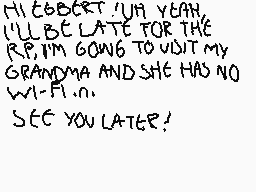 HI EGBERT! UH YEAH,
I'LL BE LATE FOR THE
RP, I'M GOING TO VISIT MY
GRANDMA AND SHE HAS NO
WI-FI.n.
SEE YOU LATER!